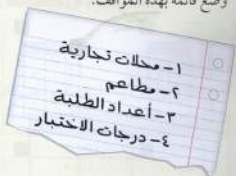 وضع قائمة بهذه المواقف.
١- محلات تجارية
٢- مطاعم
٣- أعداد الطلبة
٤- درجات الاختبار